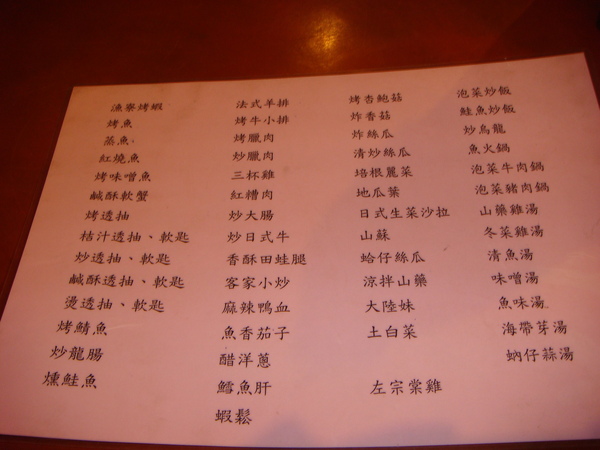 漁寮烤蝦
烤魚
蒸魚
紅燒魚
烤味噌魚
鹹酥軟蟹
烤透抽
桔汁透抽、軟匙
炒透抽、軟匙
鹹酥透抽、軟匙
燙透抽、軟匙
烤鯖魚
炒龍腸
燻鮭魚
法式羊排
烤牛小排
烤臘肉
炒臘肉
三杯雞
紅糟肉
炒大腸
炒日式牛
香酥田蛙腿
客家小炒
麻辣鴨血
魚香茄子
醋洋蔥
鱈魚肝
蝦鬆
烤杏鮑菇
炸香菇
炸絲瓜
清炒絲瓜
培根麗菜
地瓜葉
日式生菜沙拉
山蘇
蛤仔絲瓜
涼拌山藥
大陸妹
土白菜
左宗棠雞
泡菜炒飯
鮭魚炒飯
炒烏龍
魚火鍋
泡菜牛肉鍋
泡菜豬肉鍋
山藥雞湯
冬菜雞湯
清魚湯
味噌湯
魚味湯
海帶芽湯
蚋仔蒜湯